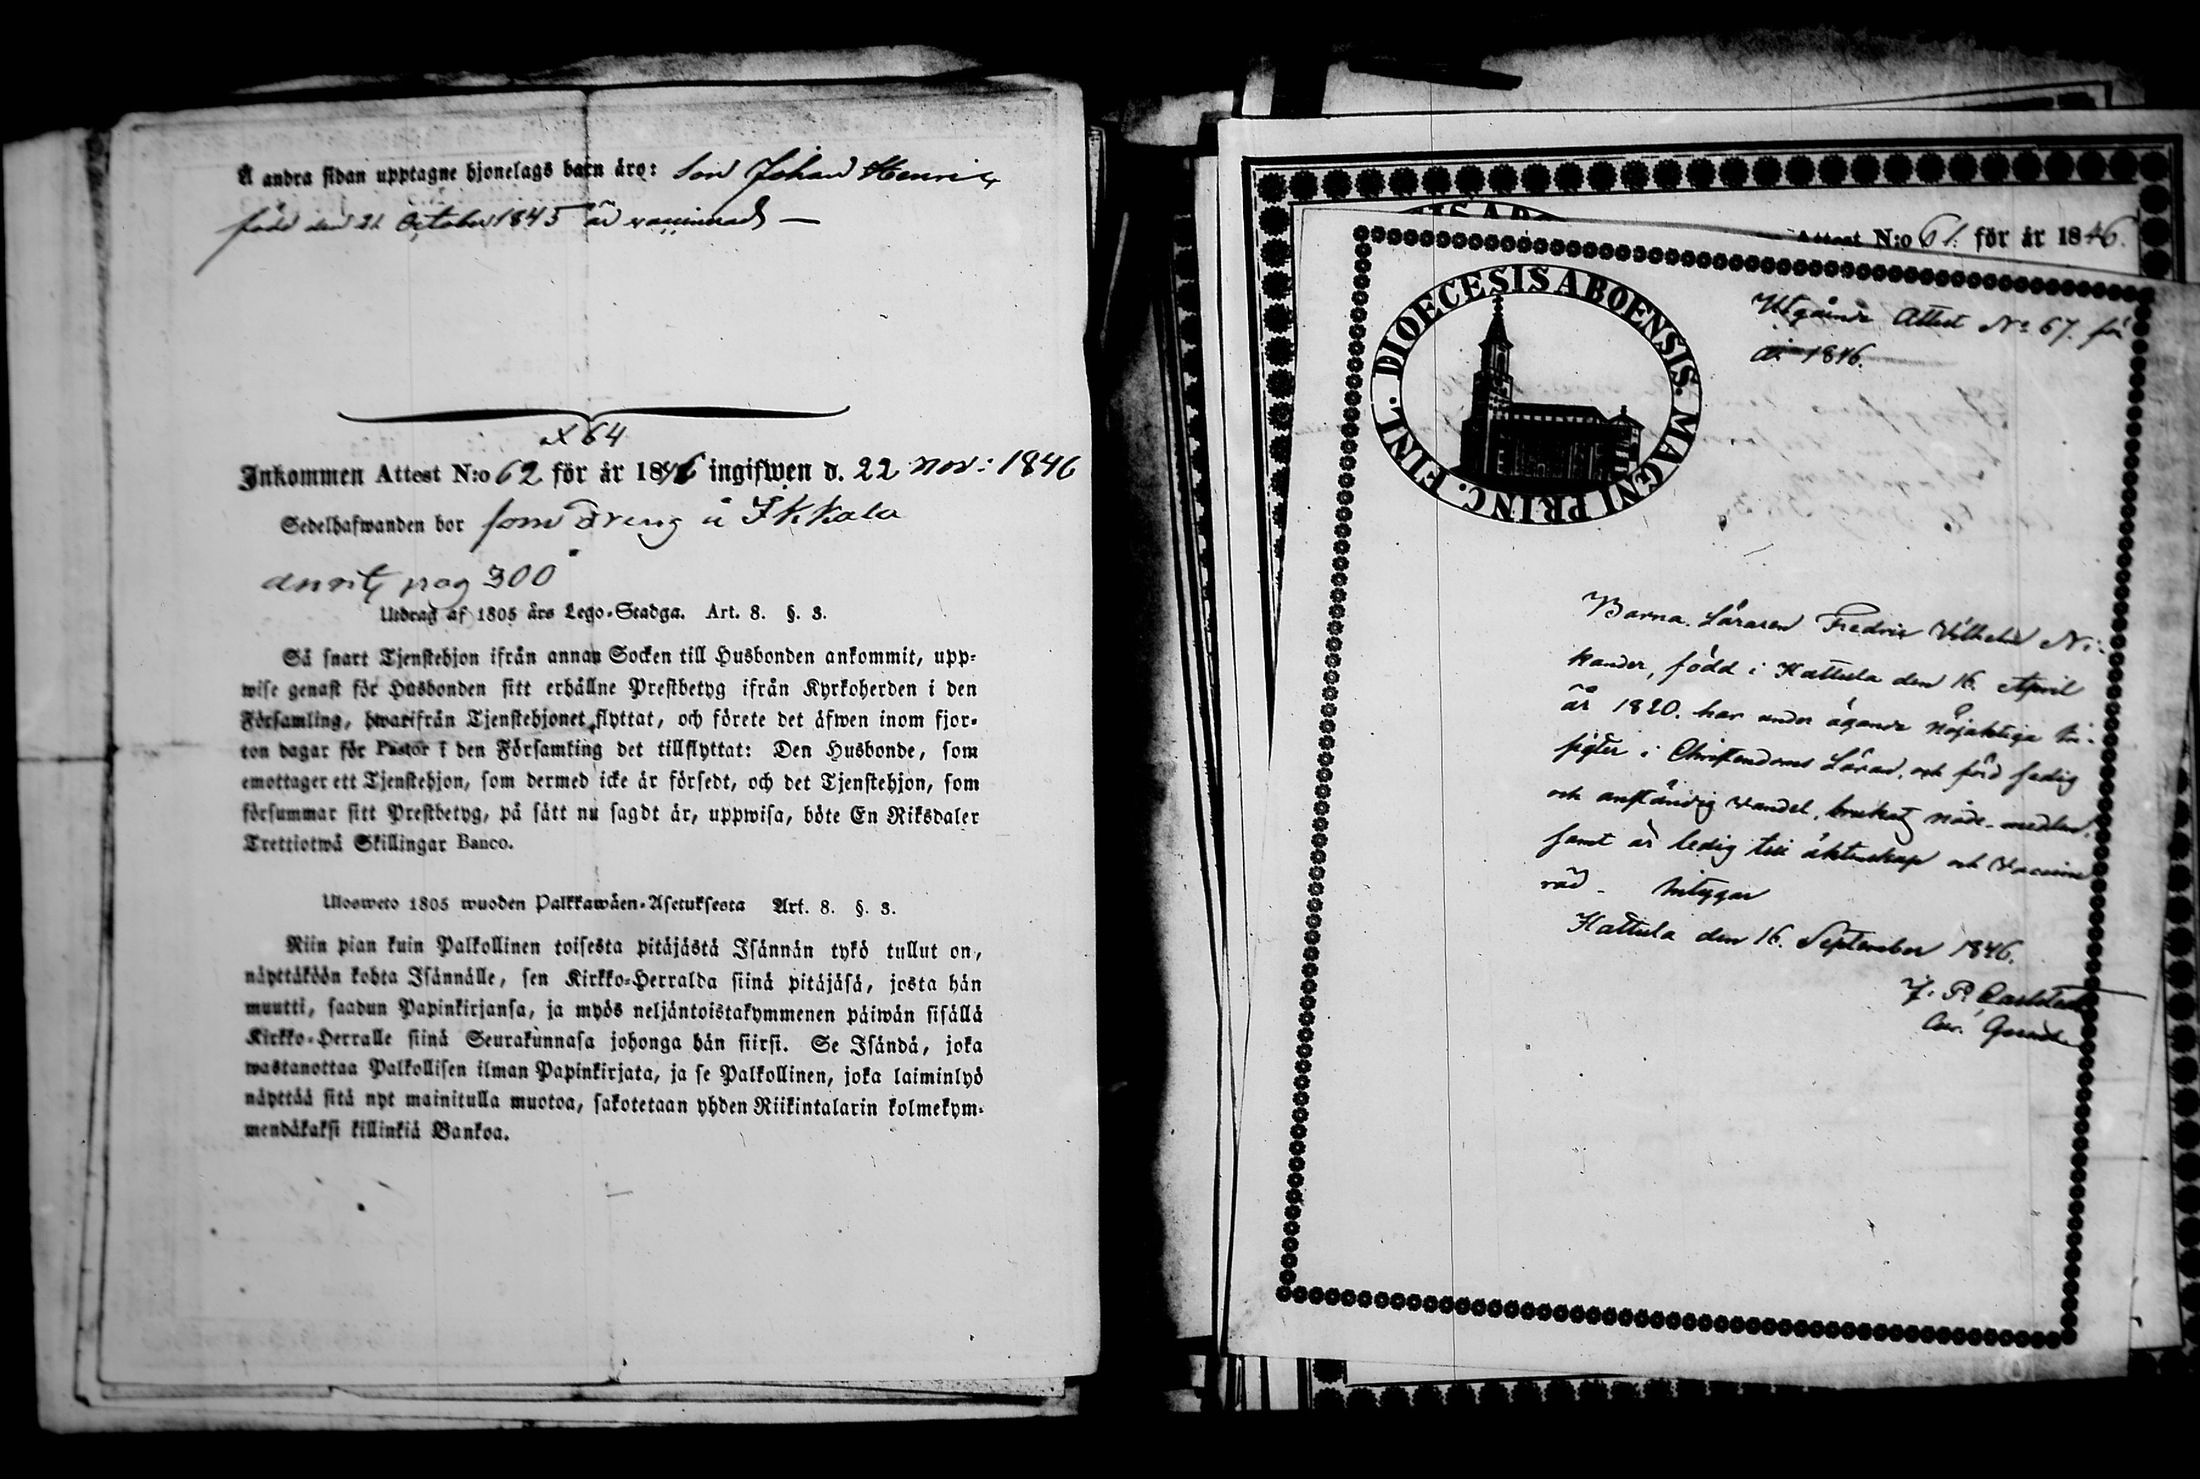 Å andra sidan upptagne hjonelags barn äro: Son Johan Henric
född den 21 October 1845 är vaccinerad —
x 64
Inkommen Attest N:o 62 för år 1846 ingifwen d. 22 nov: 1846
Sedelhafwanden bor som Dreng i Ikkala
pag 300
Utdrag af 1805 års Lego-Stadga. Art. 8. §. 3.
Så snart Tjenstehjon ifrån annan Socken till Husbonden ankommit, upp-
wise genast för Husbonden sitt erhållne Prestbetyg ifrån Kyrkoherden i den
Församling, hwarifrån Tjenstehjonet flyttat, och förete det äfwen inom fjor-
ton dagar för Pastor i den Församling det tillflyttat: Den Husbonde, som
emottager ett Tjenstehjon, som dermed icke är försedt, och det Tjenstehjon, som
försummar sitt Prestbetyg, på sätt nu sagdt är, uppwisa, böte En Riksdaler
Trettiotwå Skillingar Banco.
Ulosweto 1805 wuoden Palkkawäen-Asetuksesta Art. 8. §. 3.
Niin pian kuin Palkollinen toisesta pitäjästä Isännän tykö tullut on,
näyttäköön kohta Isännälle, sen Kirkko-Herralda siinä pitäjäsä, josta hän
muutti, saadun Papinkirjansa, ja myös neljäntoistakymmenen päiwän sisällä
Kirkko-Herralle siinä Seurakunnasa johonga hän siirsi. Se Isändä, joka
wastanottaa Palkollisen ilman Papinkirjata, ja se Palkollinen, joka laiminlyö
näyttää sitä nyt mainitulla muotoa, sakotetaan yhden Riikintalarin kolmekym-
mendäkaksi killinkiä Bankoa.
Attest N:o 61. för år 1846.
DIOECESIS ABOENSIS. MAGNI PRINC. FINL.
Utgående Attest No 67. för
år 1846.
Barna Läraren Fredric Vilhelm Ni-
kander, född i Hattula den 16. April
år 1820. har under ägande nöjaktiga in-
sigter i Christendoms Läran, och förd sedig
och anständig vandel, brukat nåde-medlen,
samt är ledig till äktenskap och vaccine-
rad. Intygar
Hattula den 16. September 1846.